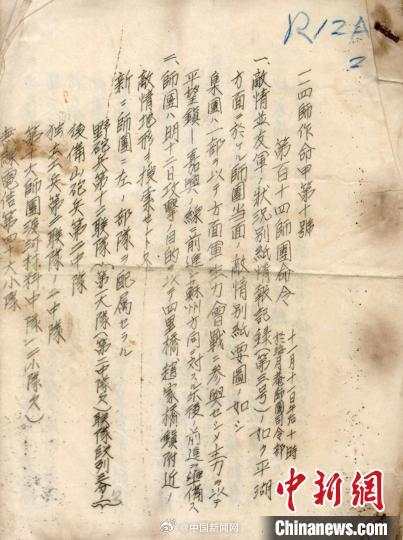 R12A
2
一一四師作命甲第十號
第百十四師團命令
十一月十一日午后十時
於海月菴師團司令部
一、敵情並友軍ノ狀況別紙情報記錄(第三号)ノ如ク平湖
方面ニ於ケル師團當面ノ敵情別紙要圖ノ如シ
集團ハ一部ヲ以テ方面軍主力會戰ニ參與セシメ主力ヲ以テ
平望鎮、嘉興ノ線ニ前進シ蘇州方向ニ對スル尔後ノ前進ヲ準備ス
二、師團ハ明十二日攻擊ノ目的ヲ以テ四里橋、趙家橋鎮附近ノ
敵情地形ヲ搜索セントス
新ニ師團ニ左ノ部隊ヲ配屬セラル
野砲兵第十二聯隊(第一大隊(第二中隊欠)聯隊段列三分ノ一)
後備山砲兵第二中隊
獨立工兵第二聯隊ノ一中隊
第十六師團渡河材料中隊(二小隊欠)
無線電信第
小隊
中新网
Chinanews.com
@中国新闻网